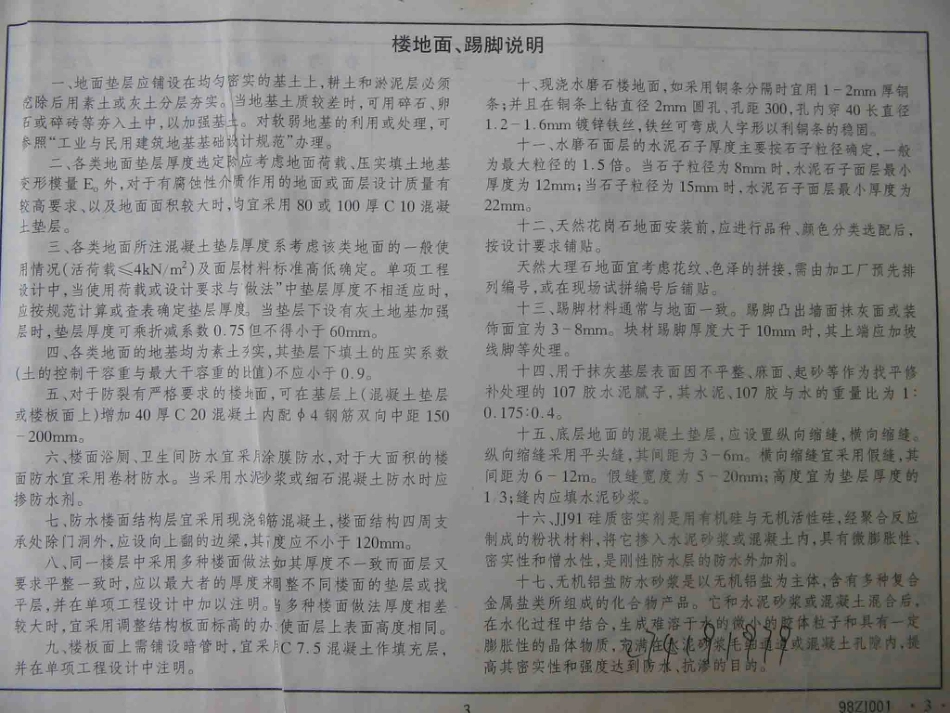 楼地面、踢脚说明
一、地面垫层应铺设在均匀密实的基土上,耕土和淤泥层必须
挖除后用素土或灰土分层夯实。当地基土质较差时,可用碎石、卵
石或碎砖等夯入土中,以加强基土。对软弱地基的利用或处理,可
参照“工业与民用建筑地基基础设计规范”办理。
二、各类地面垫层厚度选定除应考虑地面荷载、压实填土地基
变形模量E₀外,对于有腐蚀性介质作用的地面或面层设计质量有
较高要求、以及地面面积较大时,均宜采用80或100厚C10混凝
土垫层。
三、各类地面所注混凝土垫层厚度系考虑该类地面的一般使
用情况(活荷载≤4kN/m²)及面层材料标准高低确定。单项工程
设计中,当使用荷载或设计要求与“做法”中垫层厚度不相适应时,
应按规范计算或查表确定垫层厚度。当垫层下设有灰土地基加强
层时,垫层厚度可乘折减系数0.75但不得小于60mm。
四、各类地面的地基均为素土夯实,其垫层下填土的压实系数
(土的控制干容重与最大干容重的比值)不应小于0.9。
五、对于防裂有严格要求的楼地面,可在基层上(混凝土垫层
或楼板面上)增加40厚C20混凝土内配φ4钢筋双向中距150
-200mm。
六、楼面浴厕、卫生间防水宜采用涂膜防水,对于大面积的楼
面防水宜采用卷材防水。当采用水泥砂浆或细石混凝土防水时应
掺防水剂。
七、防水楼面结构层宜采用现浇钢筋混凝土,楼面结构四周支
承处除门洞外,应设向上翻的边梁,其高度应不小于120mm。
八、同一楼层中采用多种楼面做法如其厚度不一致而面层又
要求平整一致时,应以最大者的厚度来调整不同楼面的垫层或找
平层,并在单项工程设计中加以注明。当多种楼面做法厚度相差
较大时,宜采用调整结构板面标高的办法使面层上表面高度相同。
九、楼板面上需铺设暗管时,宜采用C7.5混凝土作填充层,
并在单项工程设计中注明。
十、现浇水磨石楼地面,如采用铜条分隔时宜用1-2mm厚铜
条;并且在铜条上钻直径2mm圆孔,孔距300,孔内穿40长直径
1.2-1.6mm镀锌铁丝,铁丝可弯成人字形以利铜条的稳固。
十一、水磨石面层的水泥石子厚度主要按石子粒径确定,一般
为最大粒径的1.5倍。当石子粒径为8mm时,水泥石子面层最小
厚度为12mm;当石子粒径为15mm时,水泥石子面层最小厚度为
22mm。
十二、天然花岗石地面安装前,应进行品种、颜色分类选配后,
按设计要求铺贴。
天然大理石地面宜考虑花纹、色泽的拼接,需由加工厂预先排
列编号,或在现场试拼编号后铺贴。
十三、踢脚材料通常与地面一致。踢脚凸出墙面抹灰面或装
饰面宜为3-8mm。块材踢脚厚度大于10mm时,其上端应加坡
线脚等处理。
十四、用于抹灰基层表面因不平整、麻面、起砂等作为找平修
补处理的107胶水泥腻子,其水泥、107胶与水的重量比为1:
0.175:0.4。
十五、底层地面的混凝土垫层,应设置纵向缩缝,横向缩缝。
纵向缩缝采用平头缝,其间距为3-6m。横向缩缝宜采用假缝,其
间距为6-12m。假缝宽度为5-20mm;高度宜为垫层厚度的
1/3;缝内应填水泥砂浆。
十六、JJ91硅质密实剂是用有机硅与无机活性硅,经聚合反应
制成的粉状材料,将它掺入水泥砂浆或混凝土内,具有微膨胀性、
密实性和憎水性,是刚性防水层的防水外加剂。
十七、无机铝盐防水砂浆是以无机铝盐为主体,含有多种复合
金属盐类所组成的化合物产品。它和水泥砂浆或混凝土混合后,
在水化过程中结合,生成难溶于水的微小的胶体粒子和具有一定
膨胀性的晶体物质,充满在水泥砂浆毛细通道或混凝土孔隙内,提
高其密实性和强度达到防水、抗渗的目的。
3
98ZJ001 · 3 -